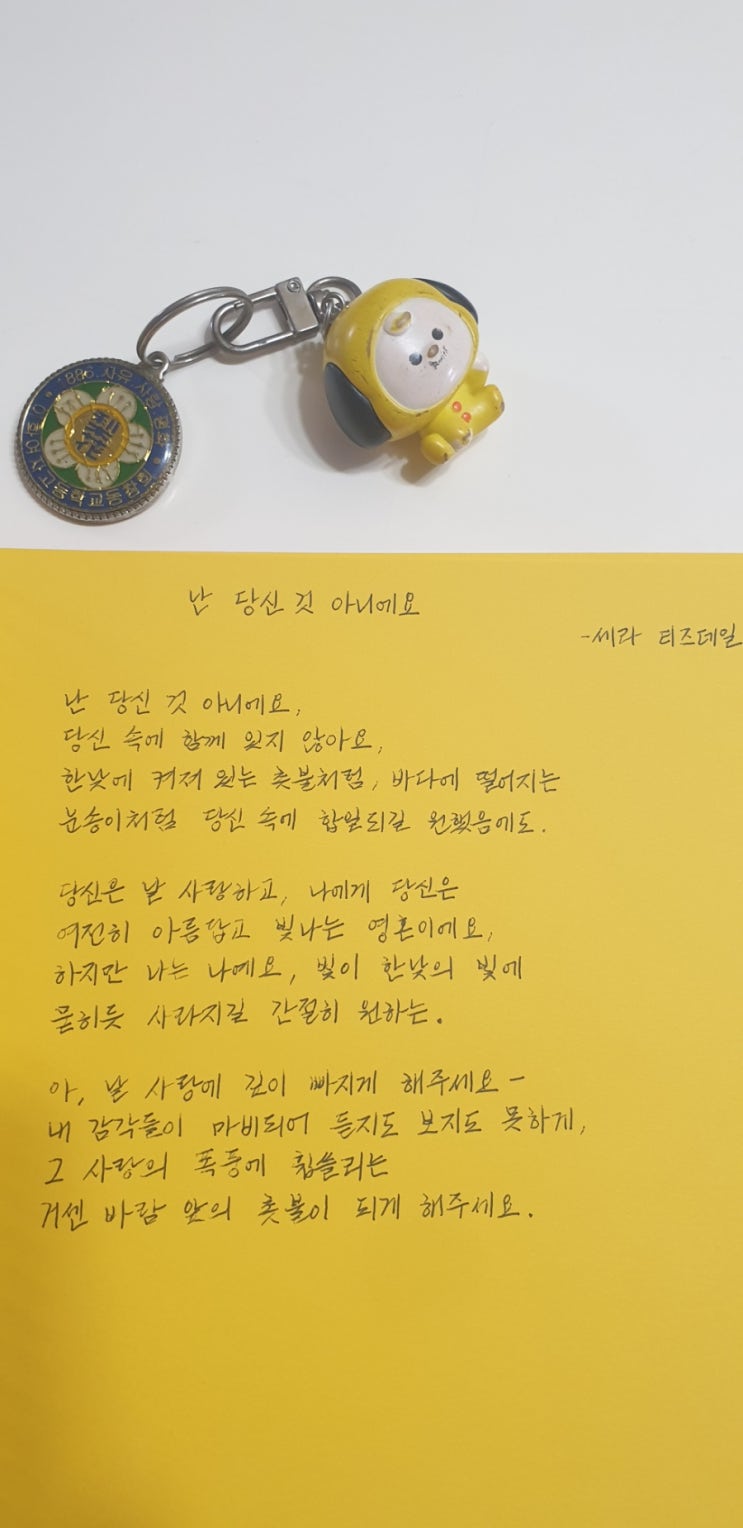 1886. 자유 사랑 평화
이화여자고등학교동창회
난 당신 것 아니에요
-세라 티즈데일
난 당신 것 아니에요,
당신 속에 함께 잊지 않아요,
한낮에 켜져 있는 촛불처럼, 바다에 떨어지는
눈송이처럼 당신 속에 합일되길 원했음에도.
당신은 날 사랑하고, 나에게 당신은
여전히 아름답고 빛나는 영혼이에요,
하지만 나는 나예요, 빛이 한낮의 빛에
묻히듯 사라지길 간절히 원하는.
아, 날 사랑에 깊이 빠지게 해주세요-
내 감각들이 마비되어 듣지도 보지도 못하게,
그 사랑의 폭풍에 휩쓸리는
거센 바람 앞의 촛불이 되게 해주세요.